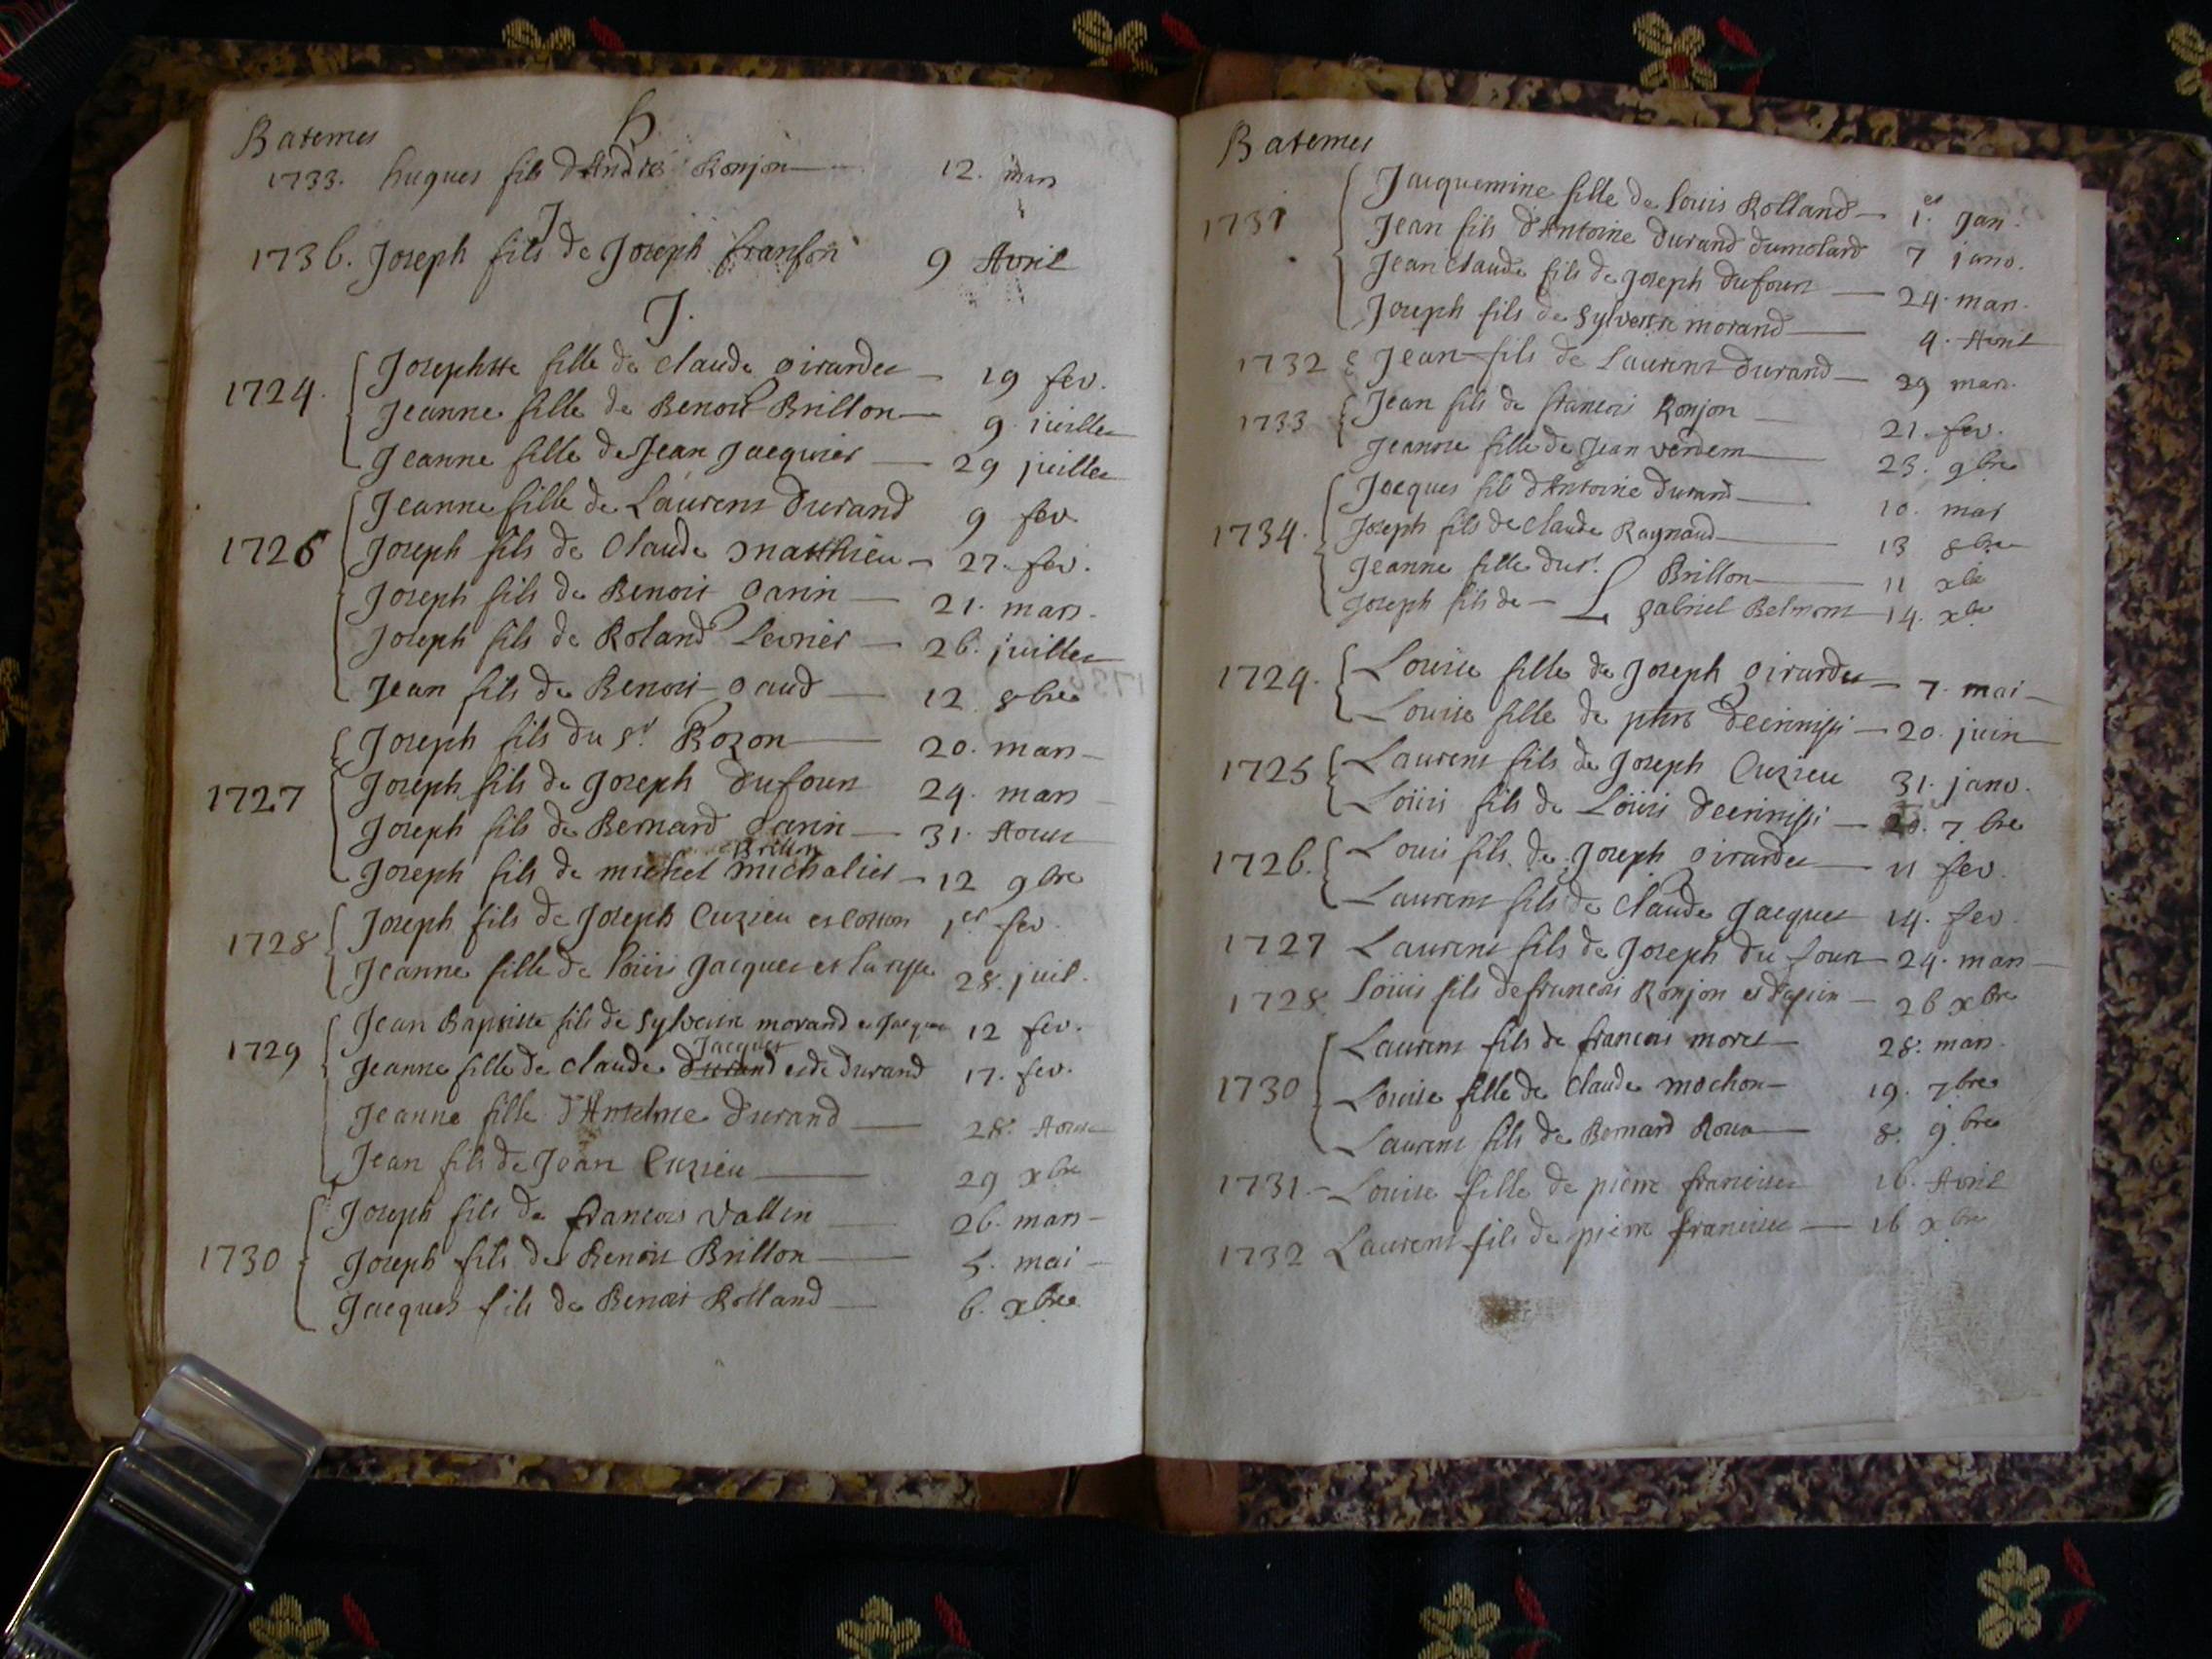 Batemes
h
1733. hugues fils d'André Ronjon 12. mars
J
1736. Joseph fils de Joseph franson 9 Avril
J.
1724. Josephtte fille de claude girardet 19 fev.
Jeanne fille de Benoit Brillon 9. juillet
Jeanne fille de Jean Jacquier 29 juillet
1726 Jeanne fille de Laurent Durand 9 fev
Joseph fils de Claude matthieu 27. fev.
Joseph fils de Benoit garin 21. mars.
Joseph fils de Roland Levrier 26. juillet
Jean fils de Benoit gaud 12 8bre
Joseph fils du Sr. Bozon 20. mars
1727 Joseph fils de Joseph dufour 24. mars
Joseph fils de Bernard garin 31. Aoust
Brillon
Joseph fils de michel michalier 12 9bre
1728 Joseph fils de Joseph Cuzieu et Cotton 1er fev.
Jeanne fille de loüis Jacquet et 28. juil.
1729 Jean Baptiste fils de Sylvestre morand et 12 fev.
Jacquet
Jeanne fille de claude durand et de durand 17. fev.
Jeanne fille d'Antelme Durand 28. Aoust
Jean fils de Jean Cuzieu 29 xbre
Joseph fils de francois vallin 26. mars
1730 Joseph fils de Benoit Brillon 5. mai
Jacques fils de Benoit Rolland 6. xbre
Batemes
1731 Jacquemine fille de louis Rolland 1.er Jan.
Jean fils d'Antoine Durand dumolard 7 janv.
Jean claude fils de Joseph Dufour 24. mars.
Joseph fils de Sylvestre morand 9. Avril
1732 Jean fils de Laurent Durand 29 mars.
1733 Jean fils de francois Ronjon 21. fev.
Jeanne fille de Jean 23. 9bre
Jacques fils d'Antoine Durand 10. mai
1734. Joseph fils de claude Raynaud 13 8bre
Jeanne fille du Sr. Brillon 11 xbre
Joseph fils de gabriel Belmont 14. xbre
L
1724. Louise fille de Joseph girardet 7. mai
Louise fille de 20. juin
1725 Laurent fils de Joseph Cuzieu 31. janv.
Loüis fils de Loüis 20. 7bre
1726. Louis fils de Joseph girardet 11 fev.
Laurent fils de claude Jacquet 14. fev.
1727 Laurent fils de Joseph du four 24. mars
1728. Loüis fils de francois Ronjon et 26 xbre
Laurent fils de francois moret 28. mars.
1730 Louise fille de claude mochon 19. 7bre
Laurent fils de Bernard Roux 8. 9bre
1731. Louise fille de pierre franciset 16. Avril
1732 Laurent fils de pierre franciset 16 xbre